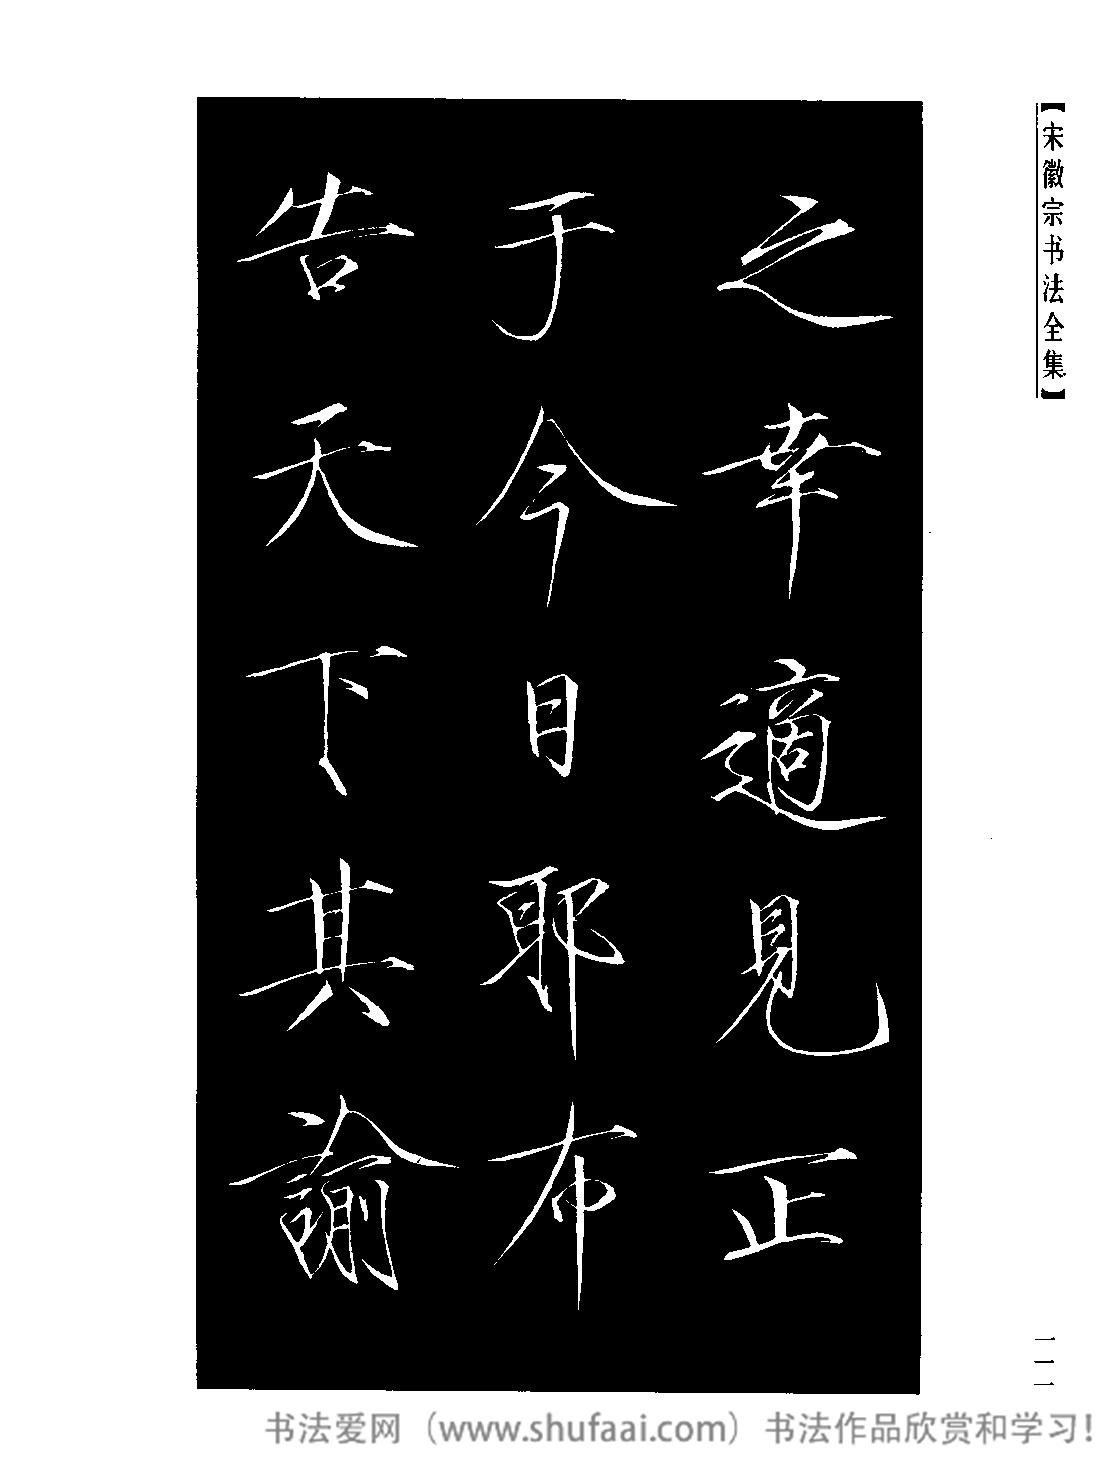 【宋徽宗书法全集】
之幸適見正
于今日耶布
告天下其諭
一一一
书法爱网（www.shufaai.com）书法作品欣赏和学习！